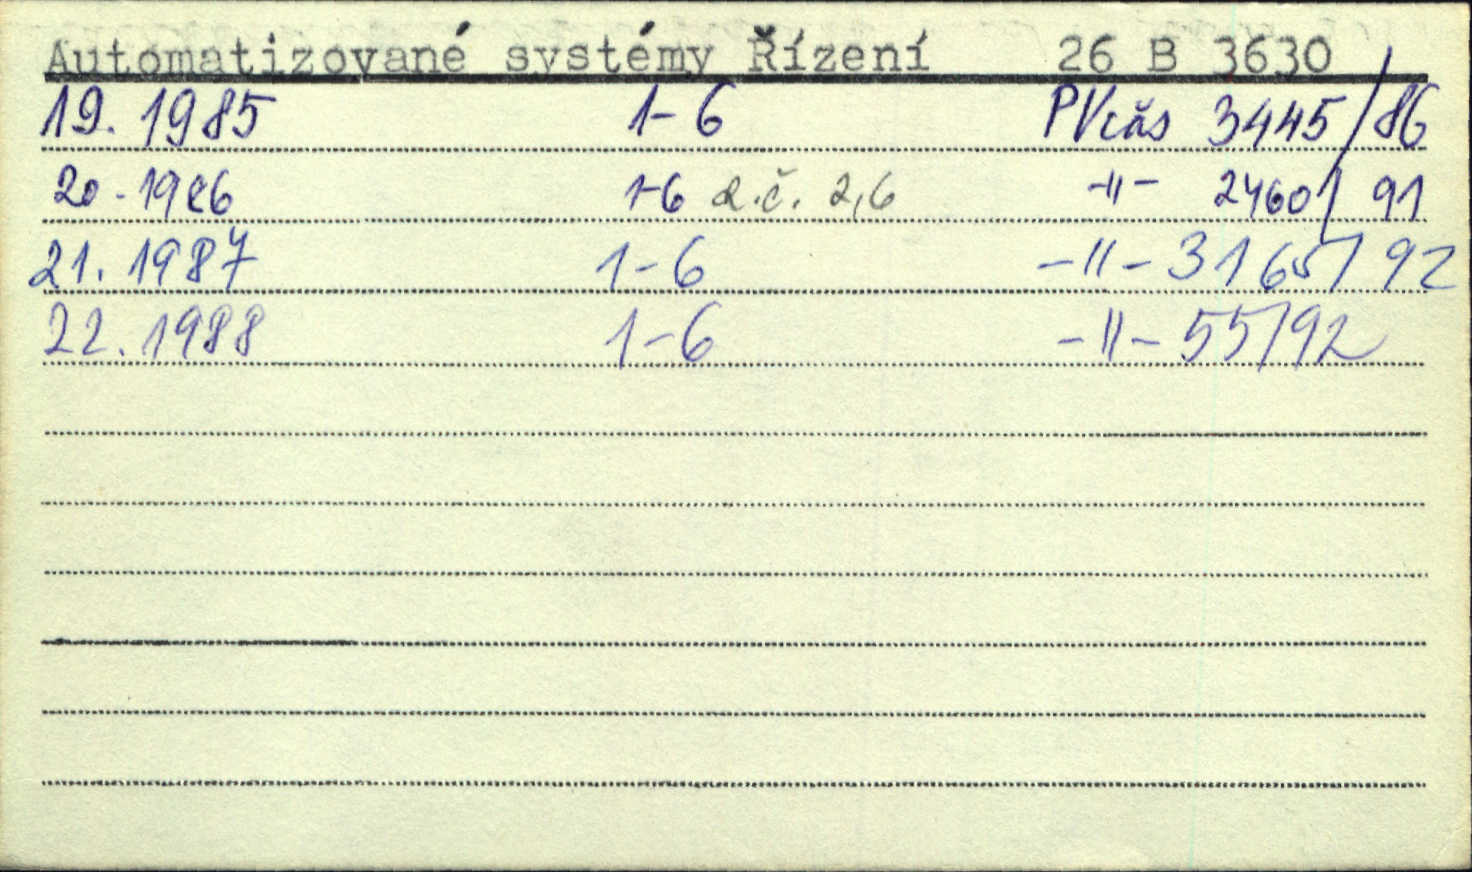 Automatizované systémy Řízení 26 B 3630
19. 1985 1-6 PVčás 3445/86
20. 1986 1-6 2.č. 2,6 -"- 2460/91
21. 1987 1-6 -"- 3165/92
22. 1988 1-6 -"- 55/92